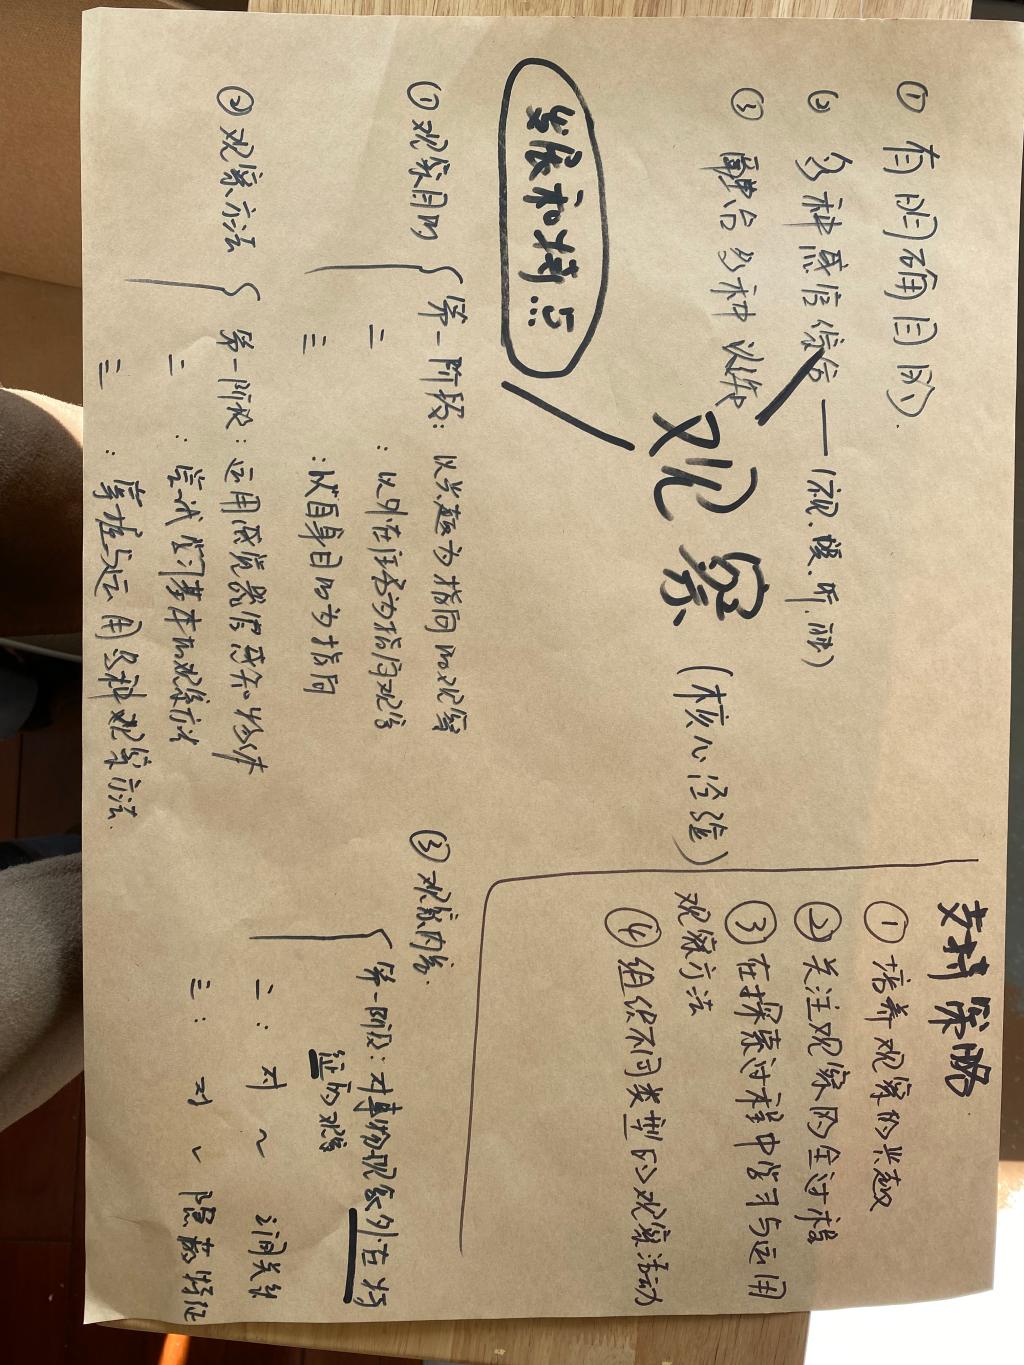 ① 有明确目的
② 多种感官综合——(视.嗅.听.
③ 融合多种认知
观察(核心经验)
发展和特点
① 观察目的
第一阶段:以兴趣为指向的观察
二:以外在任务为指向观察
三:以自身目的为指向
② 观察方法
第一阶段:运用感觉器官感知物体
二:尝试学习基本的观察方法
三:掌握与运用多种观察方法.
③ 观察内容.
第一阶段:对事物现象外在特
征的观察
二:对~之间关系
三:对~隐蔽特征
支持策略
① 培养观察的兴趣
② 关注观察的全过程
③ 在探索过程中学习与运用
观察方法
④ 组织不同类型的观察活动